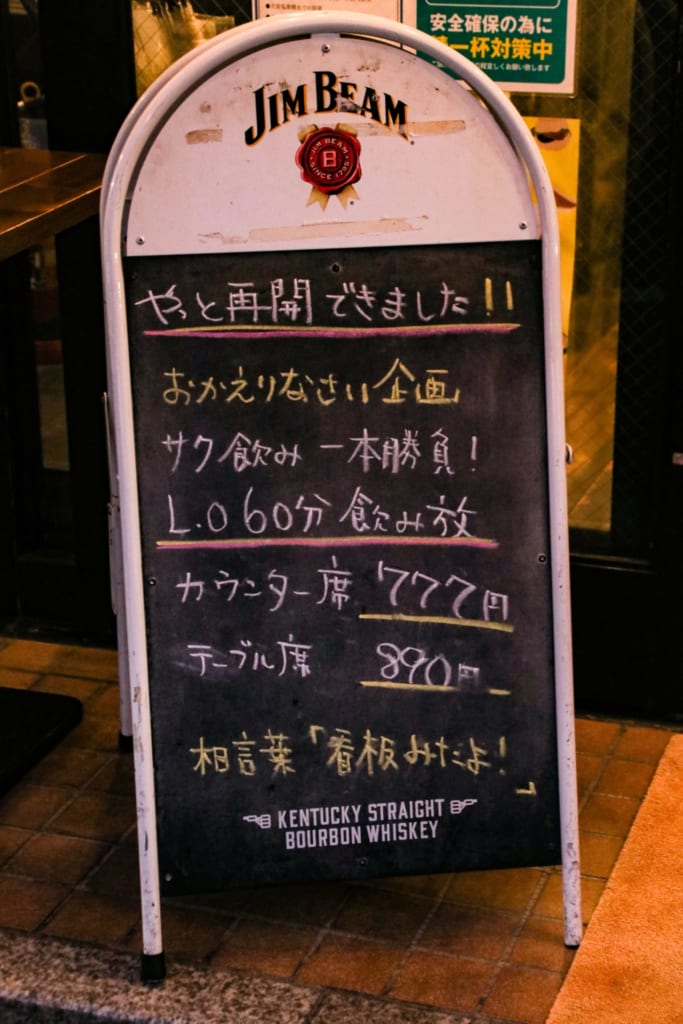 安全確保の為に
一杯対策中
JIM BEAM
JIM BEAM
B
SINCE 1795
やっと再開できました!!
おかえりなさい企画
サク飲み 一本勝負!
L.O 60分 飲み放
カウンター席 777円
テーブル席 890円
相言葉「看板みたよ!」
KENTUCKY STRAIGHT
BOURBON WHISKEY